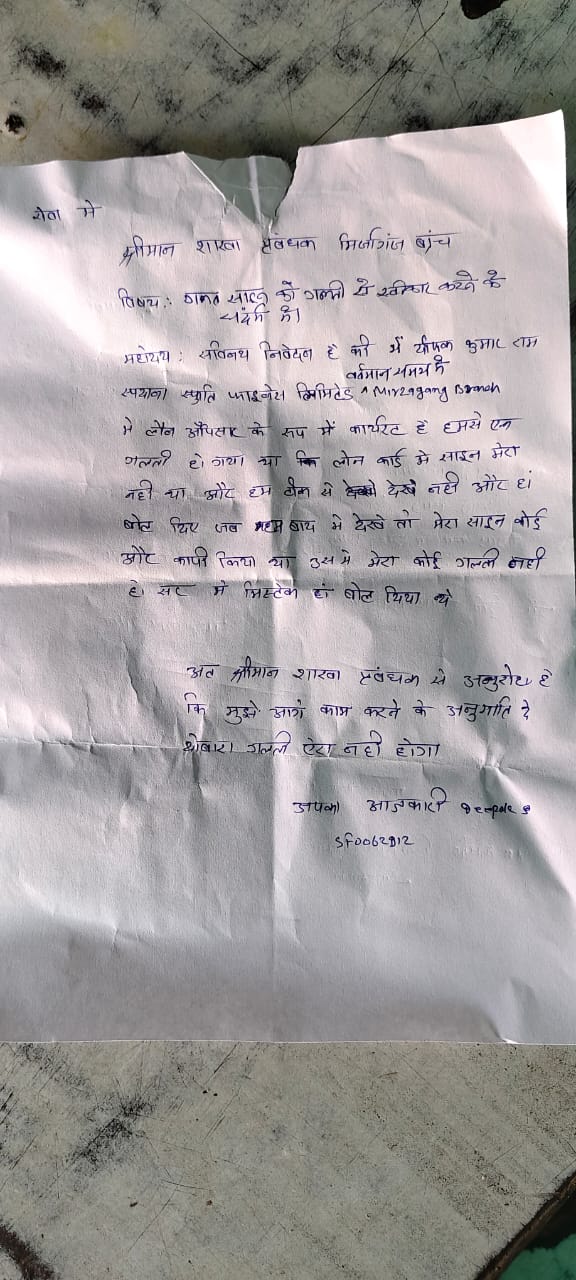 सेवा मे
श्रीमान शाखा प्रबंधक मिर्जागंज ब्रांच
विषय:- गलत साइन को गलती से स्वीकार करने के
संदर्भ में।
महोदय: सविनय निवेदन है की मैं दीपक कुमार राम
वर्तमान समय में
स्पंदना स्फूर्ति फाइनेंस लिमिटेड ^ Mirzagang Branch
मे लोन ऑफिसर के रूप में कार्यरत हैं हमसे एक
गलती हो गया था कि लोन कार्ड मे साइन मेरा
नही था और हम ठीक से देखे नही और हां
बोल दिए जब हम बाद मे देखे तो मेरा साइन कोई
और कापी किया था उस मे मेरा कोई गलती नही
है। सर मे मिस्टेक हां बोल दिया थे
अत श्रीमान शाखा प्रबंधक से अनुरोध है
कि मुझे आगे काम करने के अनुमति दे
दोबारा गलती ऐसा नही होगा
आपका आज्ञकारी Deepak
SF0062812